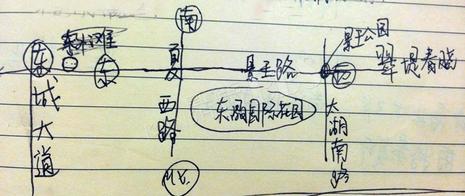 南
景王公园
东
东
夏西路
景王路
西
翠堤春晓
国际花园
东城大道
太湖南路
北